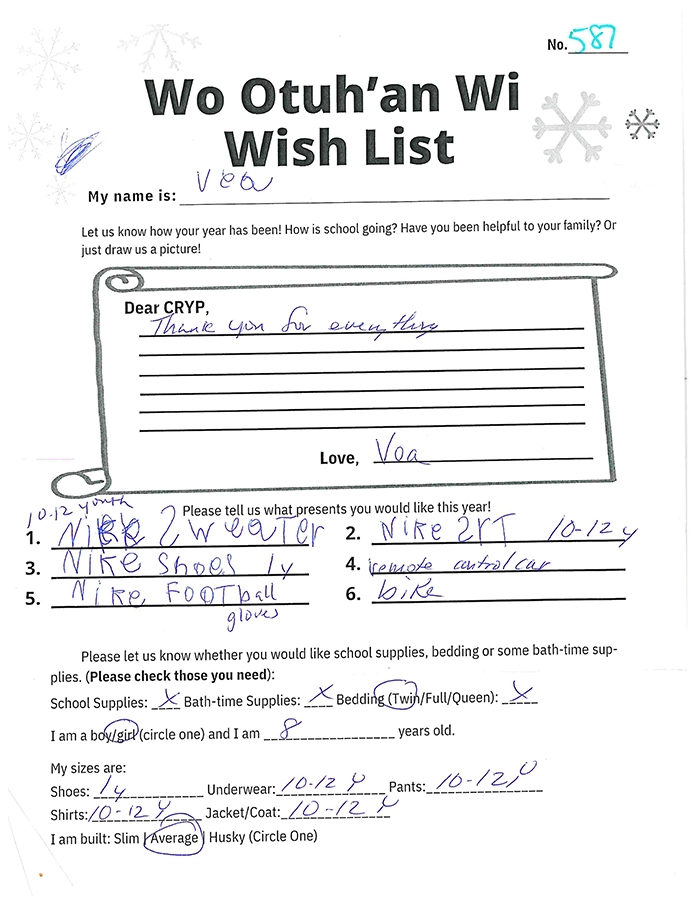 No. 587
Wo Otuh'an Wi
Wish List
My name is: Vea
Let us know how your year has been! How is school going? Have you been helpful to your family? Or
just draw us a picture!
Dear CRYP,
Thank you for everything
Love, Voa
10-12 youth
Please tell us what presents you would like this year!
1. NIKE 2WEATER 2. NIKE 2RT 10-12 y
3. NIKE Shoes 1y 4. remote control car
5. NIKE FOOTball 6. bike
gloves
Please let us know whether you would like school supplies, bedding or some bath-time sup-
plies. (Please check those you need):
School Supplies: X Bath-time Supplies: X Bedding (Twin/Full/Queen): X
I am a boy/girl (circle one) and I am 8 years old.
My sizes are:
Shoes: 1y Underwear: 10-12 Y Pants: 10-12 y
Shirts: 10-12 Y Jacket/Coat: 10-12 Y
I am built: Slim | Average | Husky (Circle One)